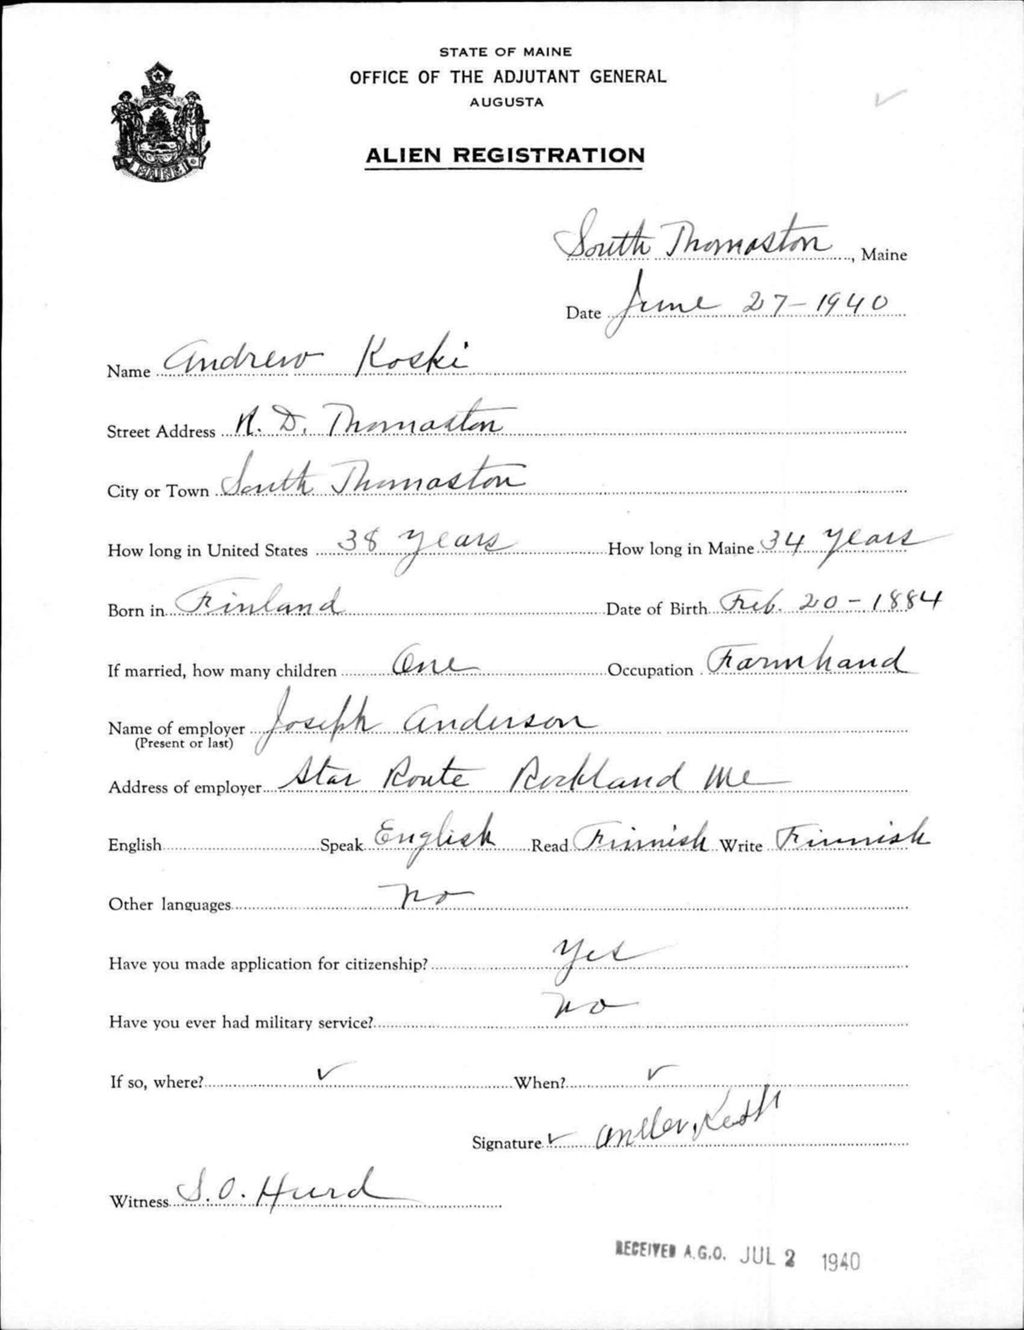 STATE OF MAINE
OFFICE OF THE ADJUTANT GENERAL
AUGUSTA
ALIEN REGISTRATION
MAINE
South Thomaston, Maine
Date June 27-1940
Name Andrew Koski
Street Address R. D. Thomaston
City or Town South Thomaston
How long in United States 38 years How long in Maine 34 years
Born in Finland Date of Birth Feb. 20-1884
If married, how many children One Occupation Farmhand
Name of employer Joseph Anderson
(Present or last)
Address of employer Star Route Rockland Me
English Speak English Read Finnish Write Finnish
Other languages no
Have you made application for citizenship? Yes
Have you ever had military service? no
If so, where? ✓ When? ✓
Signature ✓
Witness S. O. Hurd
RECEIVED A.G.O. JUL 2 1940